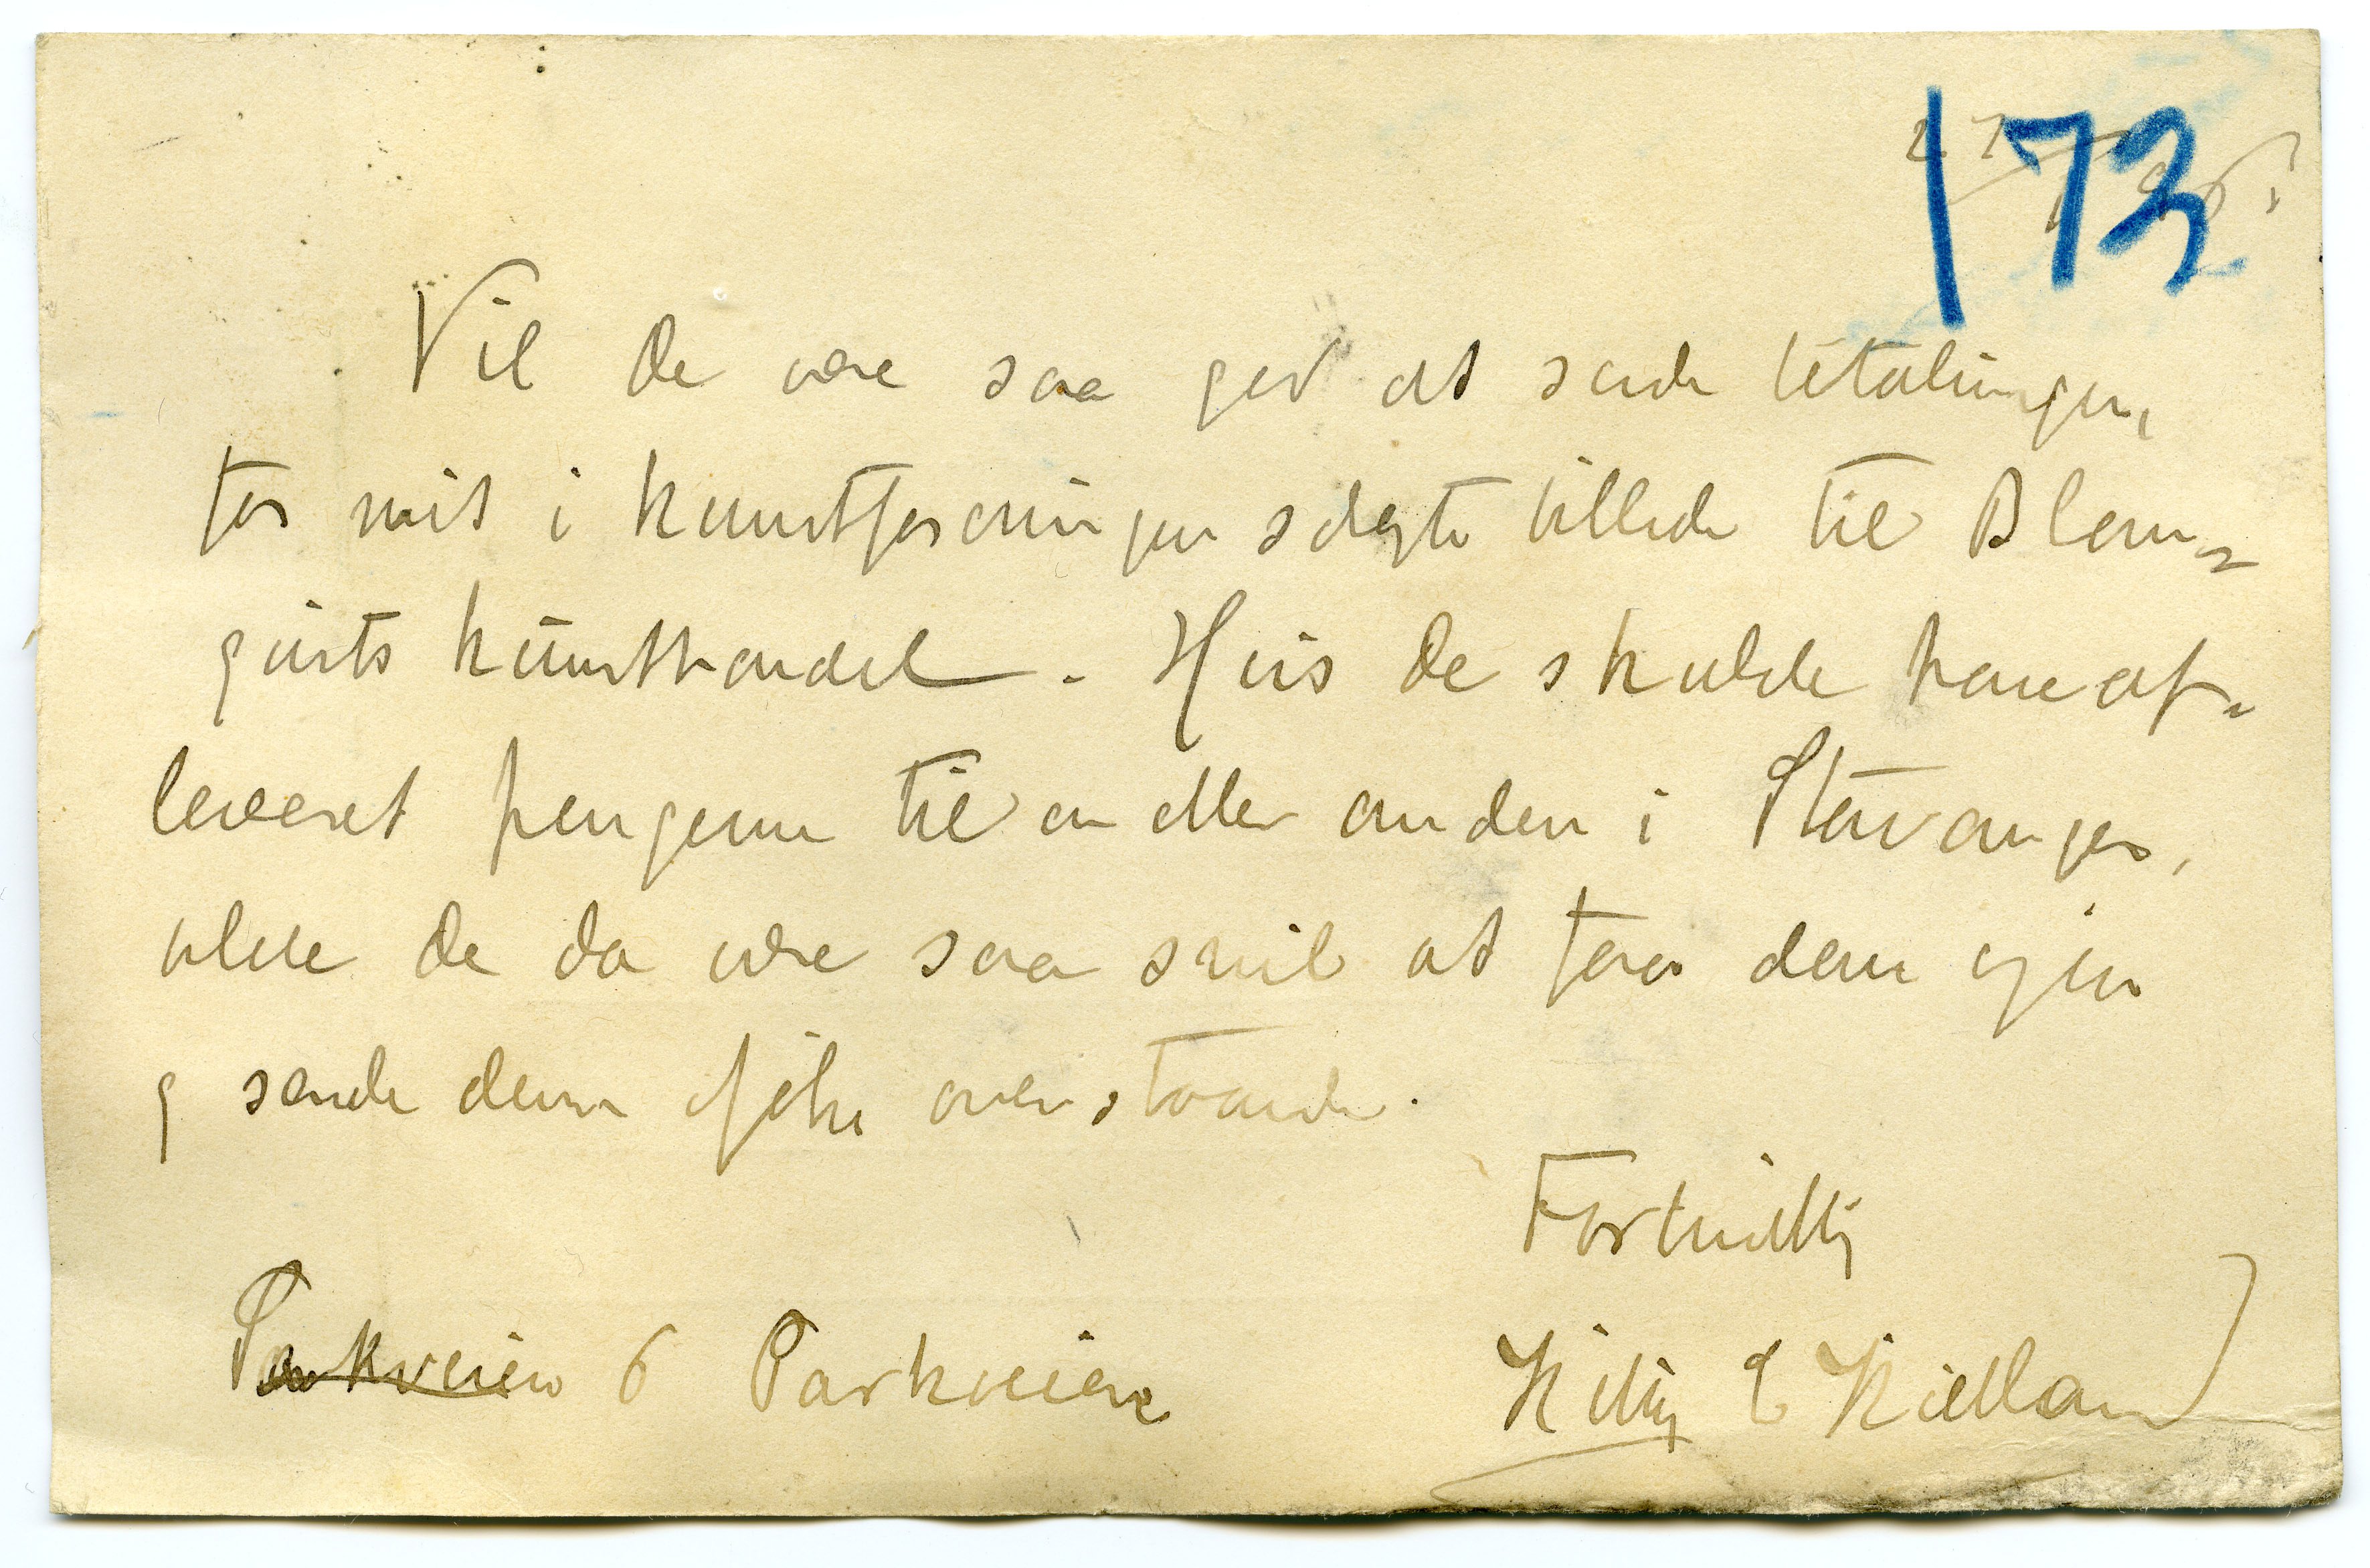 173
27/
Vil De være saa god at sende betalingen,
for mit i Kunstforeningen solgte billede til Blom=
quists kunsthandel. Hvis De skulde have af=
leveret pengene til en eller anden i Stavanger,
vilde De da være saa snil at faa dem igjen
og sende dem ifølge ovenstaaende.
Forbindtlig
Parkveien 6 Parkveien Kitty L Kielland